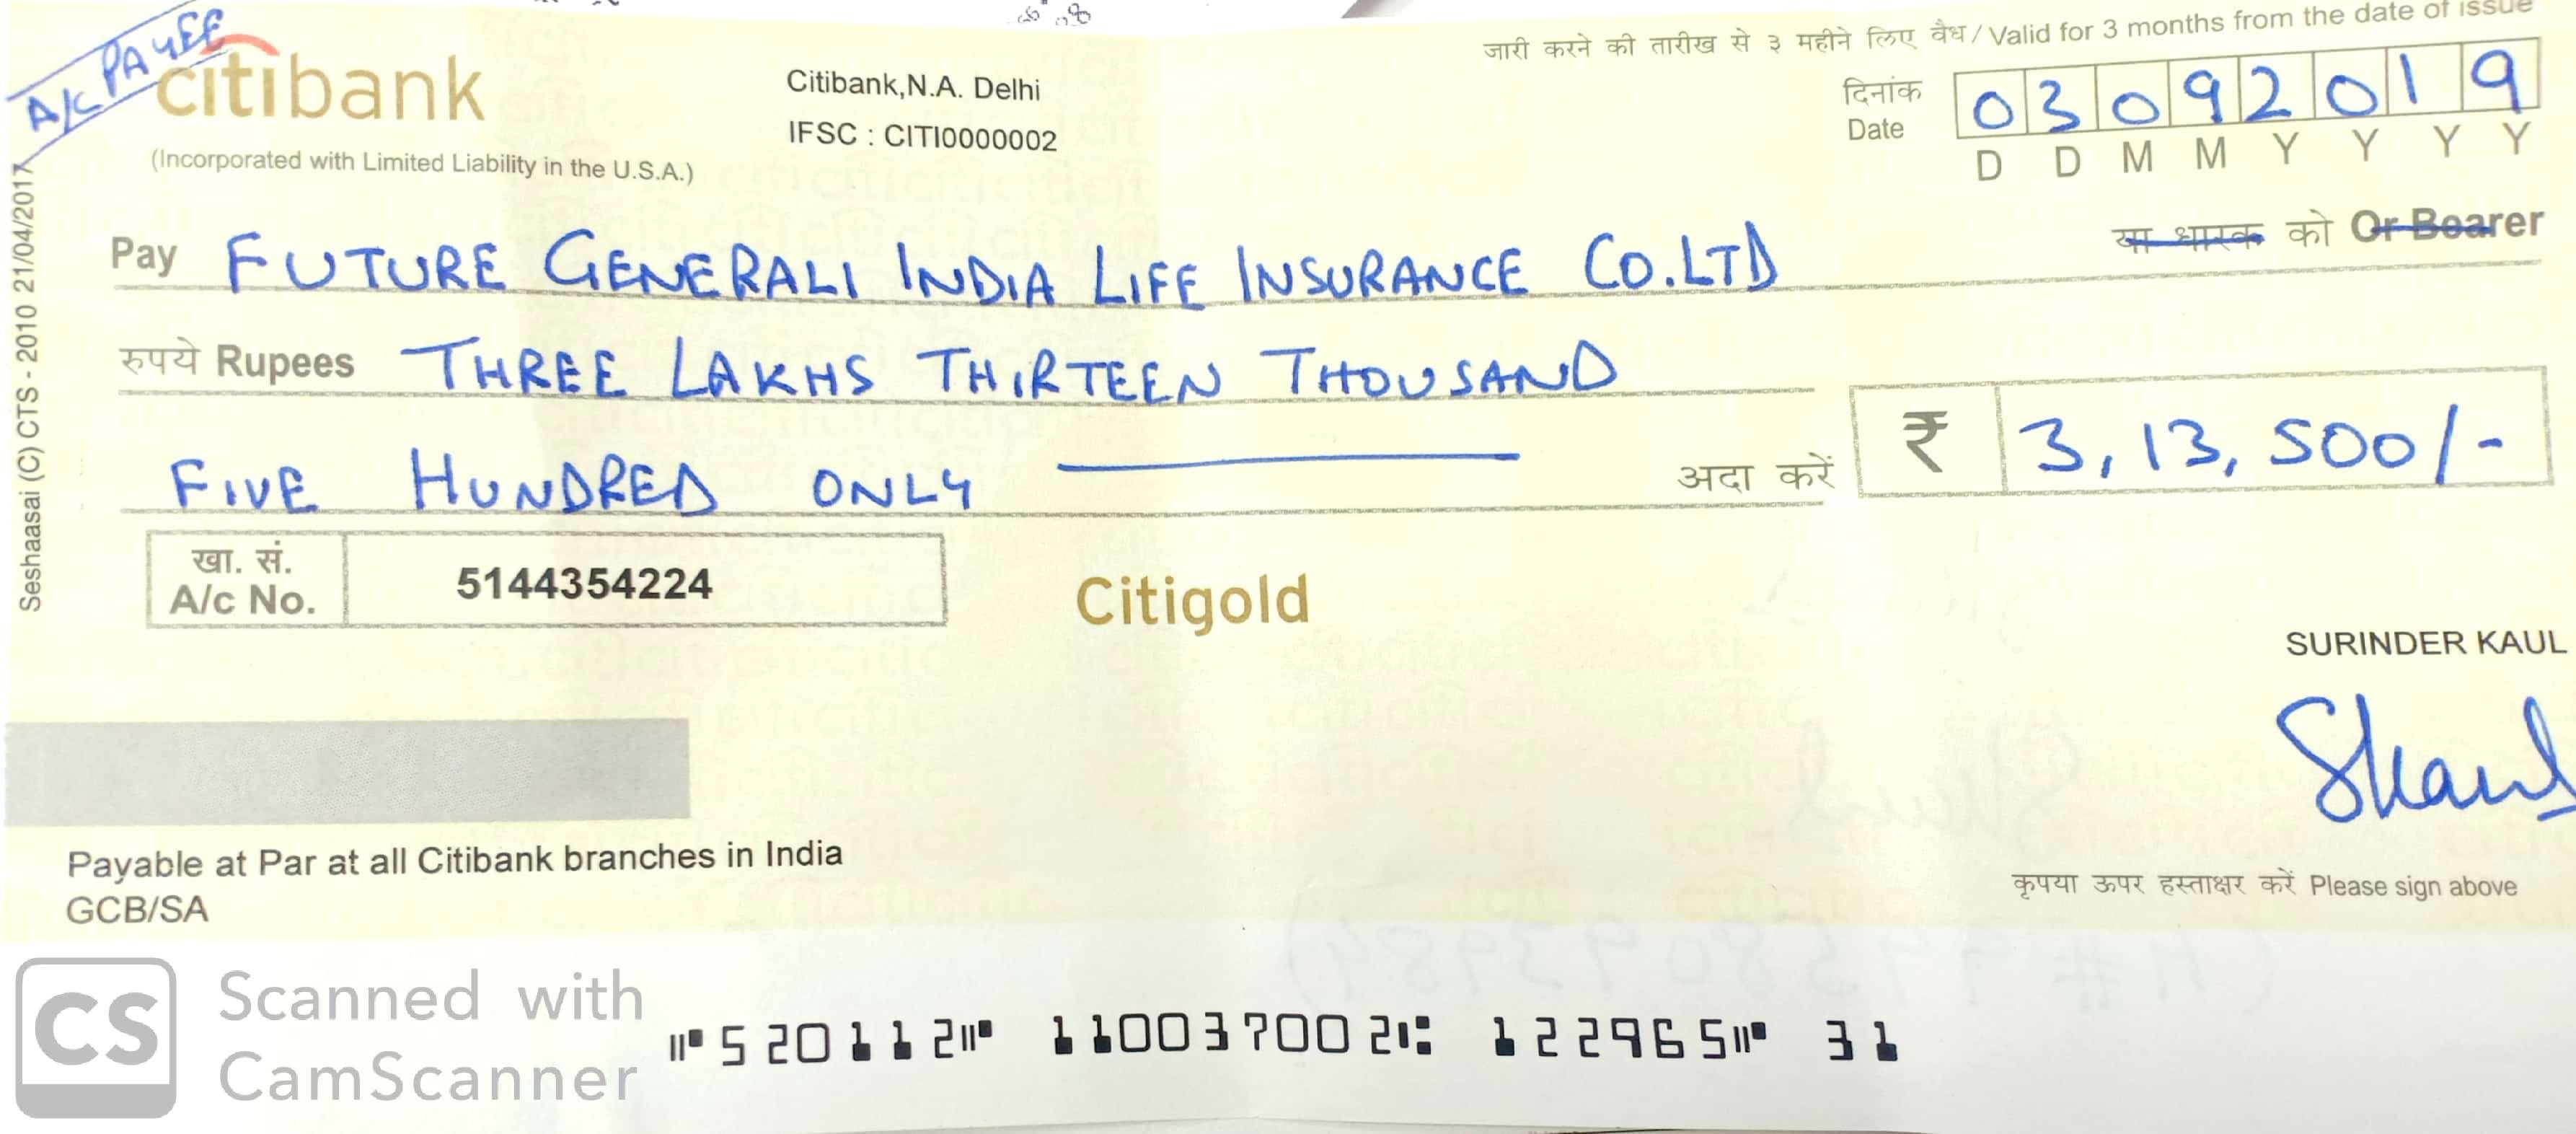 A/C PAYEE
citibank
(Incorporated with Limited Liability in the U.S.A.)
Citibank,N.A. Delhi
IFSC : CITI0000002
जारी करने की तारीख से ३ महीने लिए वैध / Valid for 3 months from the date of issue
दिनांक
Date
0 3 0 9 2 0 1 9
D D M M Y Y Y Y
Pay FUTURE GENERALI INDIA LIFE INSURANCE CO.LTD
या धारक को Or Bearer
रुपये Rupees THREE LAKHS THIRTEEN THOUSAND
FIVE HUNDRED ONLY
अदा करें ₹ 3,13,500/-
खा. सं.
A/c No. 5144354224
Citigold
SURINDER KAUL
Skaul
Payable at Par at all Citibank branches in India
GCB/SA
कृपया ऊपर हस्ताक्षर करें Please sign above
Seshaasai (C) CTS - 2010 21/04/2017
CS
Scanned with
CamScanner
⑈520112⑈ 110037002⑆ 122965⑈ 31